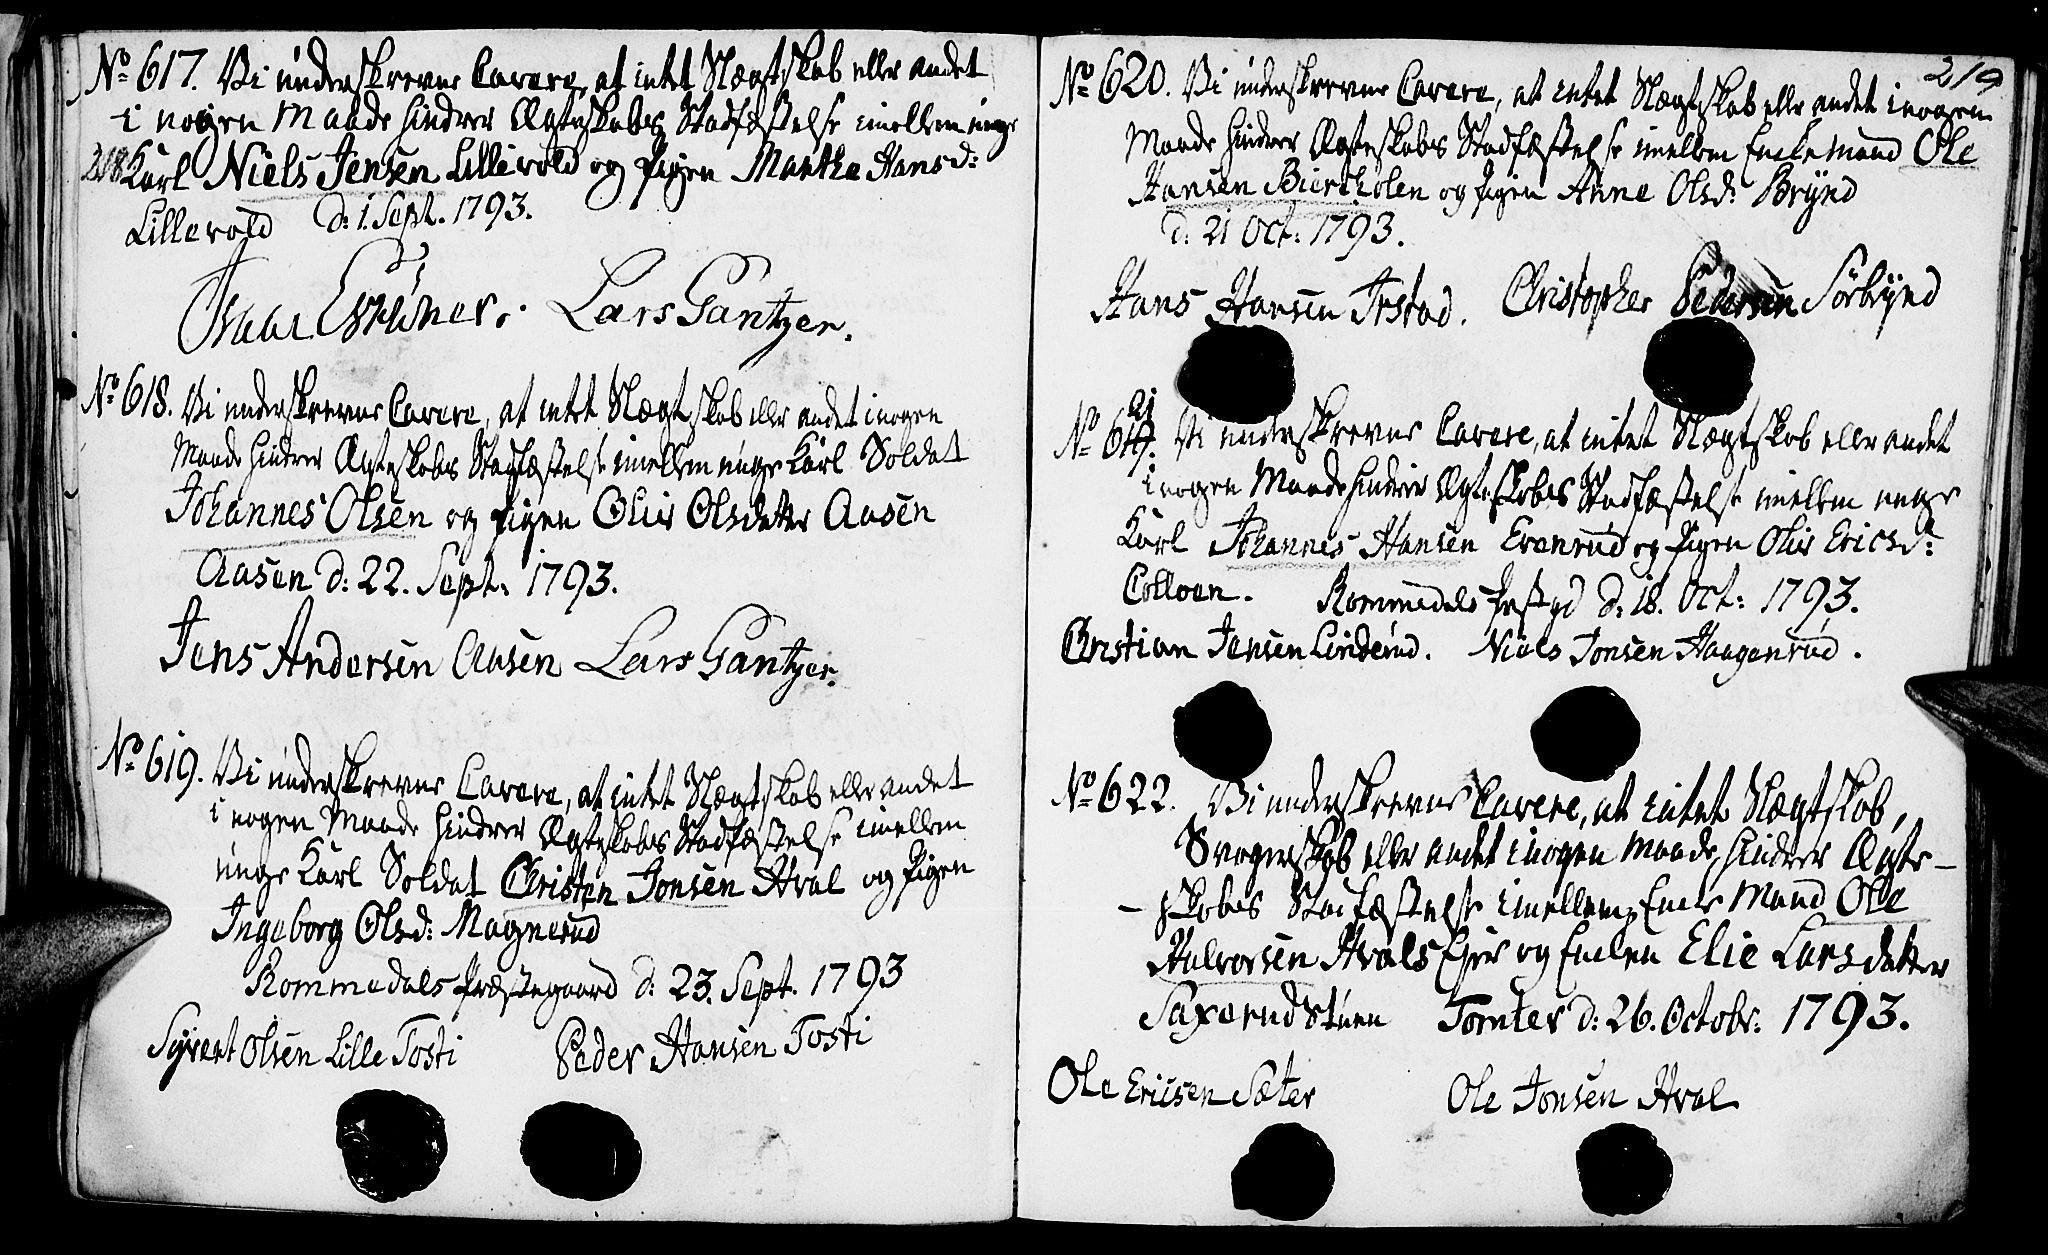 No 617. Vi underskrevne Cavere, at intet Slægtskab eller andet
i nogen Maade hindrer Ægteskabs Stadfæstelse imellem unge
218 Karl Niels Jensen Lillevold og Pigen Marthe Hansd:
Lillevold d: 1. Sept. 1793.
Lars Gantzer.
No 618. Vi underskrevne Cavere, at intet Slægtskab eller andet i nogen
Maade hindrer Ægteskabs Stadfæstelse imellem unge Karl Soldat
Johannes Olsen og Pigen Olia Olsdatter Aasen
Aasen d: 22. Sept. 1793.
Jens Andersen Aasen Lars Gantzer.
No 619. Vi underskrevne Cavere, at intet Slægtskab eller andet
i nogen Maade hindrer Ægteskabs Stadfæstelse imellem
unge Karl Soldat Christen Jonsen Hval og Pigen
Ingeborg Olsd: Magnerud
Rommedals Præstegaard d: 23. Sept. 1793
Syvert Olsen Lille Tosti Peder Hansen Tosti
219
No 620. Vi underskrevne Cavere, at intet Slægtskab eller andet i nogen
Maade hindrer Ægteskabs Stadfæstelse imellem Enkemand Ole
Hansen Bierkholen og Pigen Anne Olsd: Brÿnd
d: 21 Oct: 1793.
Hans Hansen Frstad. Christopher Pedersen Sörbÿnd
No 621. Vi underskrevne Cavere, at intet Slægtskab eller andet
i nogen Maade hindrer Ægteskabs Stadfæstelse imellem unge
Karl Johannes Hansen Evenrud og Pigen Olia Ericsd:
Colloen. Rommedals Præstgd d: 18. Oct: 1793.
Christian Jensen Linderud. Niels Jonsen Haagenrud.
No 622. Vi underskrevne Cavere, at intet Slægtskab,
Svogerskab eller andet i nogen Maade, hindrer Ægte-
-skabs Stadfæstelse imellem Enke Mand Ole
Halvorsen Hvals Ejer og Enken Elie Larsdatter
Saxerud Stuen Tomter d: 26. Octobr: 1793.
Ole Ericsen Sæter Ole Jonsen Hval